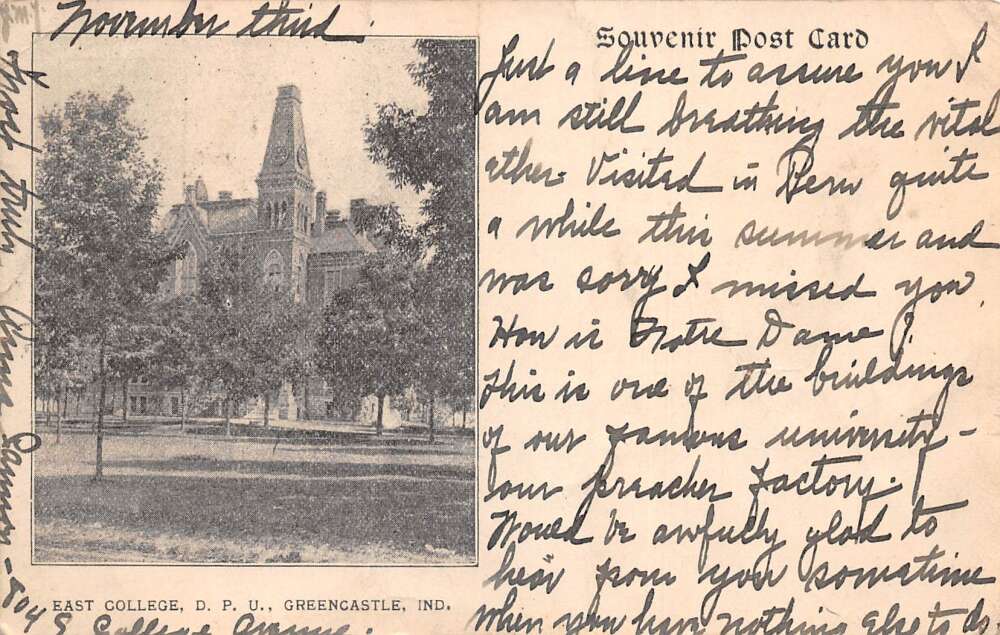 November third.
Souvenir Post Card
Just a line to assure you I
am still breathing the vital
ether. Visited in Peru quite
a while this summer and
was sorry I missed you.
How is Notre Dame?
This is one of the buildings
of our famous university -
our preacher factory.
Would be awfully glad to
hear from you sometime
when you have nothing else to do.
Most Truly
EAST COLLEGE, D. P. U., GREENCASTLE, IND.
804
S. College Avenue.